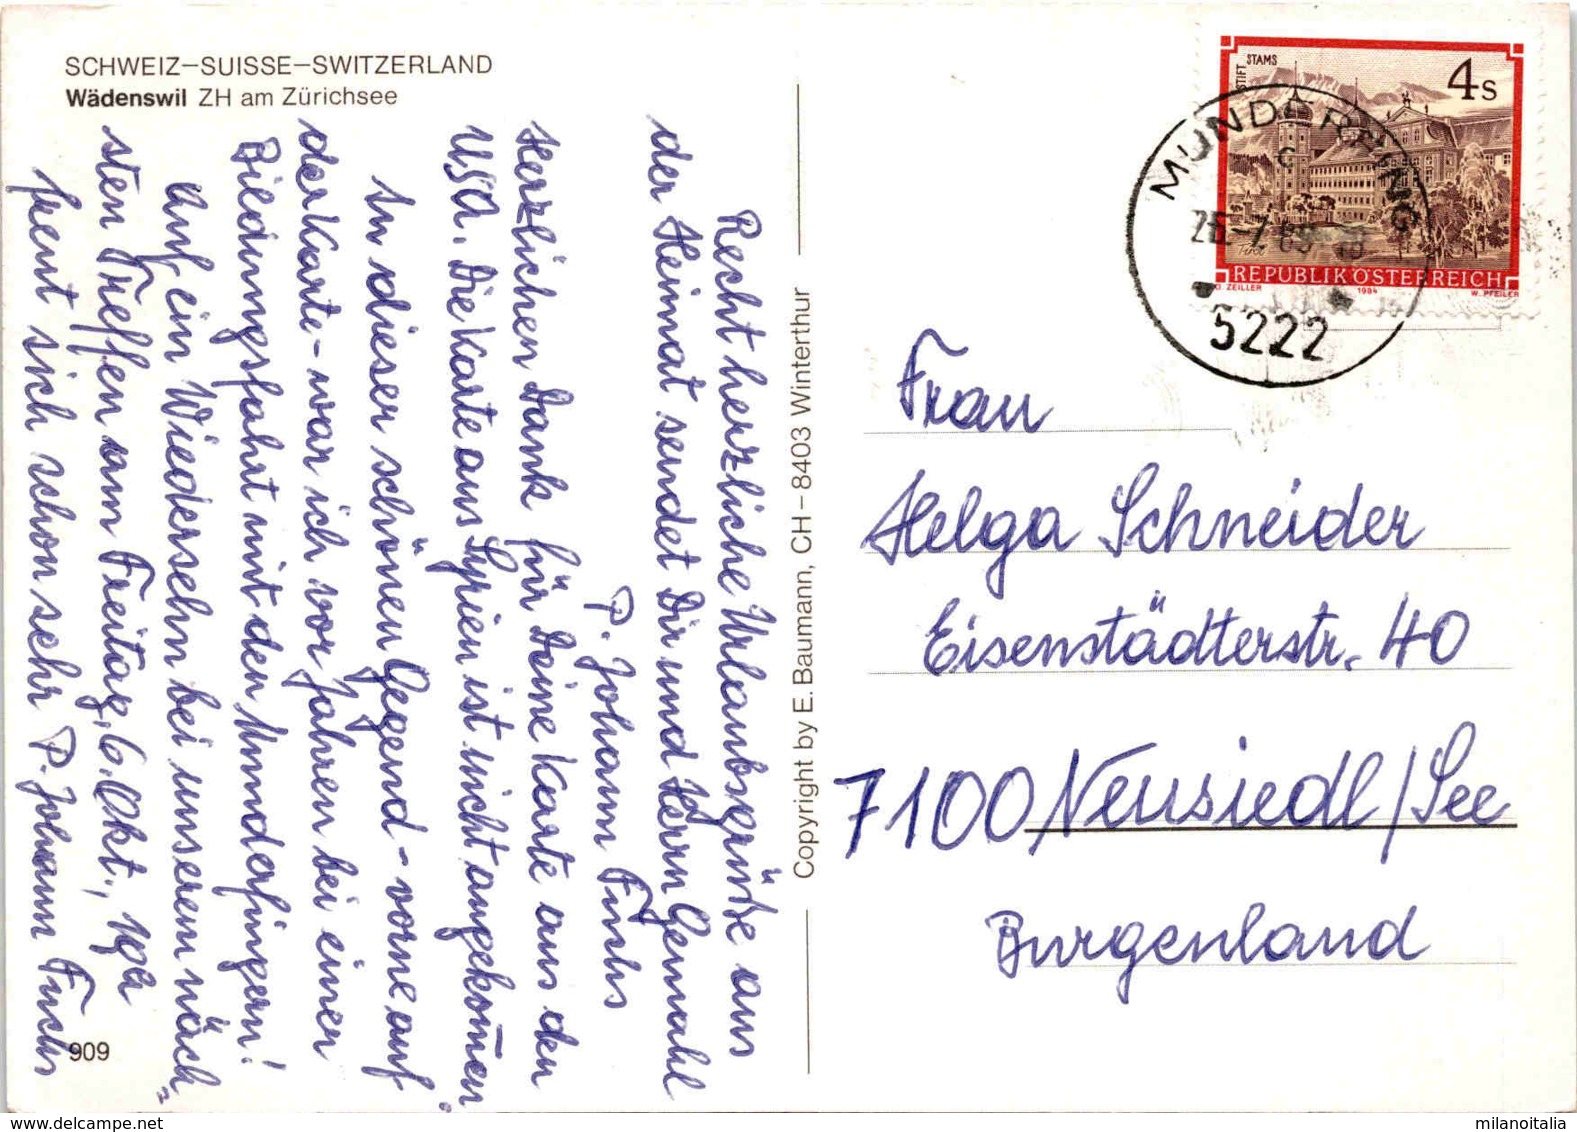 SCHWEIZ–SUISSE–SWITZERLAND
Wädenswil ZH am Zürichsee
Recht herzliche Urlaubsgrüße aus
der Heimat sendet Dir und Herrn Gemahl
P. Johann Fuchs
Herzlichen Dank für Deine Karte aus den
USA. Die Karte aus Syrien ist nicht angekommen.
In dieser schönen Gegend - vorne auf
der Karte - war ich vor Jahren bei einer
Bildungsfahrt mit den Munderfingern!
Auf ein Wiedersehn bei unserem näch-
sten Treffen am Freitag, 6. Okt.,
freut sich schon sehr P. Johann Fuchs
909
Copyright by E. Baumann, CH – 8403 Winterthur
STIFT STAMS
4 S
REPUBLIK ÖSTERREICH
O. ZEILLER 1984 W. PFEILER
MUNDERFING
C
5222
Frau
Helga Schneider
Eisenstädterstr. 40
7100 Neusiedl/See
Burgenland
www.delcampe.net
milanoitalia